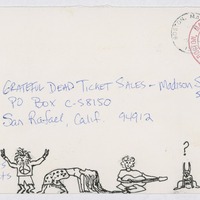 BOSTON, MA
GRATEFUL DEAD TICKET SALES - Madison S
PO BOX C-S8150
San Rafael, Calif. 94912
?